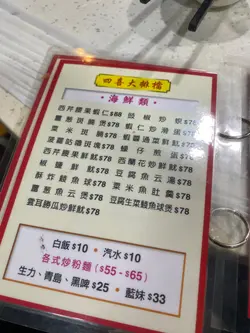 四喜大排檔
海鮮類
西芹腰果蝦仁$88 豉椒炒蜆$78
薑葱斑腩煲$78 蝦仁炒滑蛋$78
粟米斑腩$78 蝦醬通菜鮮魷$78
菠蘿咕嚕斑塊$78 蠔仔煎蛋$78
西芹腰果鮮魷$78 西蘭花炒鮮魷$78
椒鹽鮮魷$78 豆腐魚云湯$78
酥炸鯪魚球$78 粟米魚肚羹$78
薑葱魚云煲$78 豆腐生菜鯪魚球煲$78
雲耳勝瓜炒鮮魷$78
白飯$10 • 汽水$10
各式炒粉麵($55-$65)
生力、青島、黑啤$25 • 藍妹$33